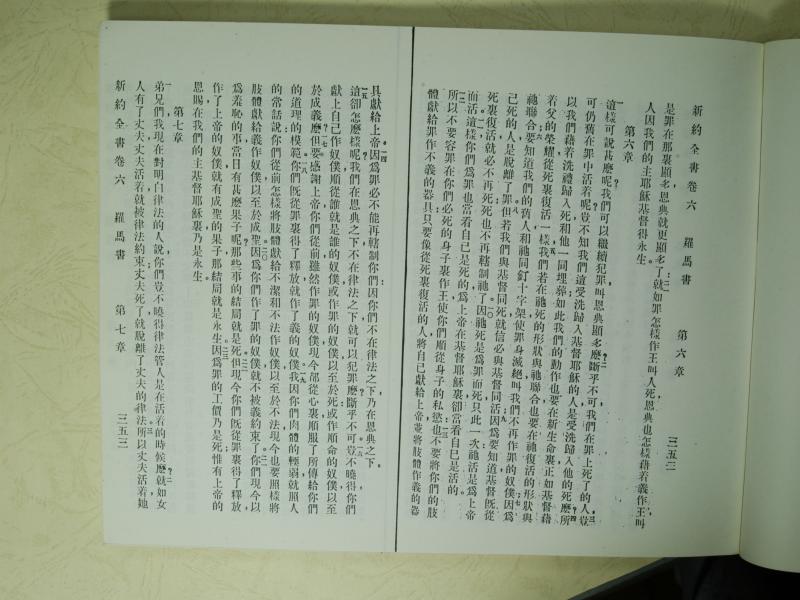 新約全書卷六　羅馬書　第六章　三五二
是罪在那裏顯多恩典就更顯多了就如罪怎樣作王叫人死恩典也怎樣藉着義作王叫
人因我們的主耶穌基督得永生
第六章
這樣可說甚麼呢我們可以繼續犯罪叫恩典顯多麼斷乎不可我們在罪上死了的人豈
可仍舊在罪中活着呢豈不知我們這受洗歸入基督耶穌的人是受洗歸入他的死麼所
以我們藉着洗禮歸入死和他一同埋葬如此我們的動作也要在新生命裏正如基督藉
着父的榮耀從死裏復活一樣我們若在祂死的形狀與祂聯合也要在祂復活的形狀與
祂聯合要知道我們的舊人和祂同釘十字架使罪身滅絕叫我們不再作罪的奴僕因爲
已死的人是脫離了罪但若我們與基督同死就信必與基督同活因爲要知道基督既從
死裏復活就必不再死死也不再轄制祂了因祂死是爲罪而死只此一次祂活是爲上帝
而活這樣你們爲罪也當看自己是死的爲上帝在基督耶穌裏卻當看自己是活的
所以不要容罪在你們必死的身子裏作王使你們順從身子的私慾也不要將你們的肢
體獻給罪作不義的器具只要像從死裏復活的人將自己獻給上帝並將肢體作義的器
具獻給上帝因爲罪必不能再轄制你們因你們不在律法之下乃在恩典之下
這卻怎麼樣呢我們在恩典之下不在律法之下就可以犯罪麼斷乎不可豈不曉得你們
獻上自己作奴僕順從誰就是誰的奴僕或作罪的奴僕以至於死或作順命的奴僕以至
於成義麼但要感謝上帝你們從前雖然作罪的奴僕現今卻從心裏順服了所傳給你們
的道理的模範你們既從罪裏得了釋放就作了義的奴僕我因你們肉體的輭弱就照人
的常話說你們從前怎樣將肢體獻給不潔和不法作奴僕以至於不法現今也要照樣將
肢體獻給義作奴僕以至於成聖因爲你們作了罪的奴僕就不被義約束了你們現今以
爲羞恥的事當日有甚麼果子呢那些事的結局就是死但現今你們既從罪裏得了釋放
作了上帝的奴僕就有成聖的果子那結局就是永生因爲罪的工價乃是死惟有上帝的
恩賜在我們的主基督耶穌裏乃是永生
第七章
弟兄們我現在對明白律法的人說你們豈不曉得律法管人是在活着的時候麼就如女
人有了丈夫丈夫活着就被律法約束丈夫死了就脫離了丈夫的律法所以丈夫活着她
新約全書卷六　羅馬書　第七章　三五三